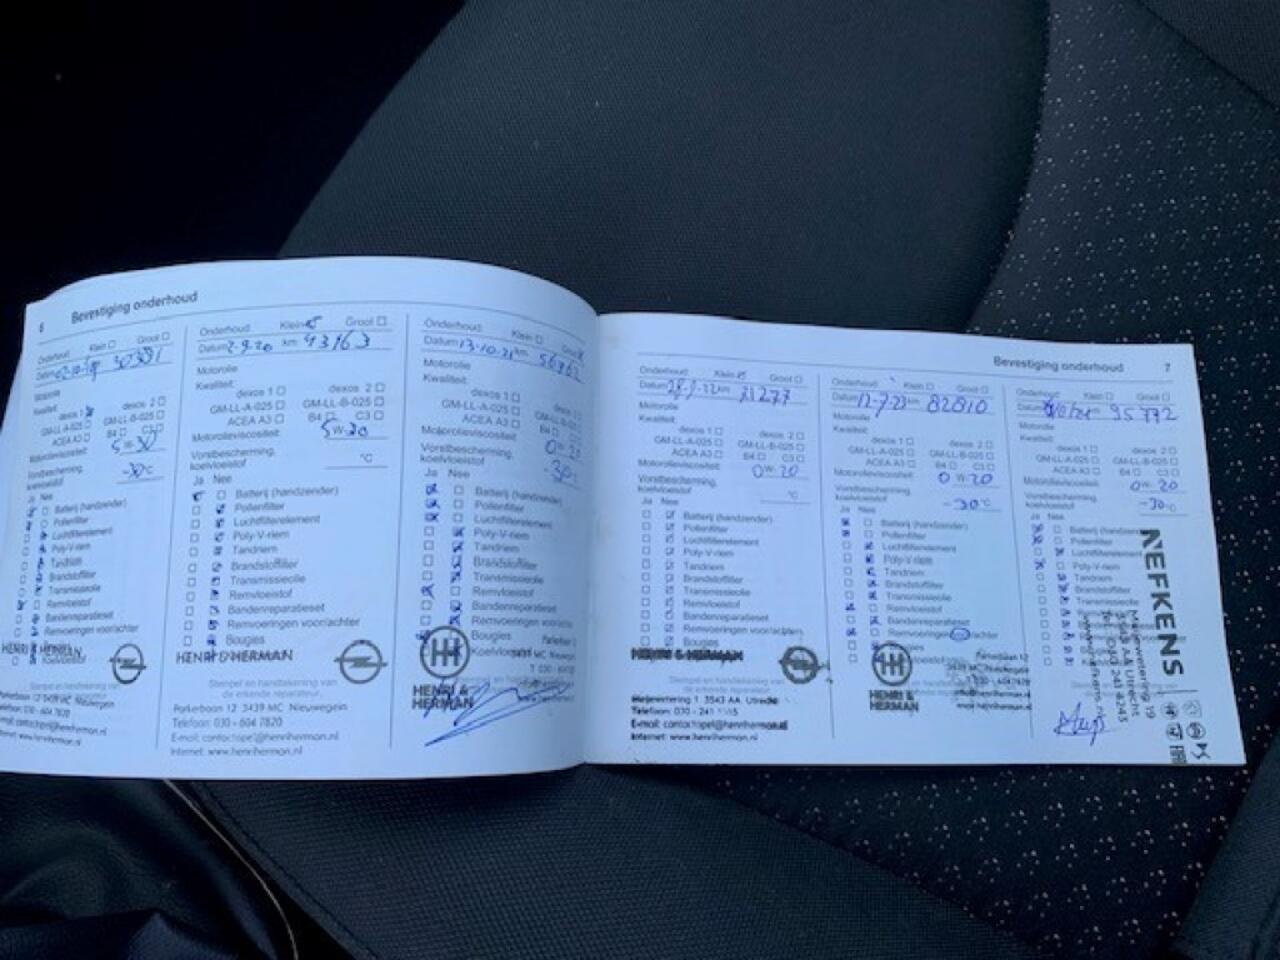 6 Bevestiging onderhoud
Onderhoud: Klein Groot
Datum 02-10-19 30391
Motorolie
Kwaliteit:
dexos 1 dexos 2
GM-LL-A-025 GM-LL-B-025
ACEA A3 B4 C3
Motorolieviscositeit:
5W-30
Vorstbescherming koelvloeistof
-30°C
Ja Nee
Batterij (handzender)
Pollenfilter
Luchtfilterelement
Poly-V-riem
Tandriem
Brandstoffilter
Transmissieolie
Remvloeistof
Bandenreparatieset
Remvoeringen voor/achter
Koelvloeistof
HENRI & HERMAN
Stempel en handtekening van
de erkende reparateur.
Parkerbaan 12 3439 MC Nieuwegein
Telefoon: 030 - 604 7820
Internet: www.henriherman.nl
Onderhoud: Klein Groot
Datum 2-9-20 km 43163
Motorolie
Kwaliteit:
dexos 1 dexos 2
GM-LL-A-025 GM-LL-B-025
ACEA A3 B4 C3
Motorolieviscositeit:
Vorstbescherming
koelvloeistof °C
Ja Nee
Batterij (handzender)
Pollenfilter
Luchtfilterelement
Poly-V-riem
Tandriem
Brandstoffilter
Transmissieolie
Remvloeistof
Bandenreparatieset
Remvoeringen voor/achter
Bougies
HENRI & HERMAN
Stempel en handtekening van
de erkende reparateur.
Parkerbaan 12 3439 MC Nieuwegein
Telefoon: 030 - 604 7820
E-mail: contactopel@henriherman.nl
Internet: www.henriherman.nl
Onderhoud: Klein Groot
Datum 13-10-21 km
Motorolie
Kwaliteit:
dexos 1
GM-LL-A-025
ACEA A3
Motorolieviscositeit
0W-20
Vorstbescherming
koelvloeistof
-30°C
Ja Nee
Batterij (handzender)
Pollenfilter
Luchtfilterelement
Poly-V-riem
Tandriem
Brandstoffilter
Transmissieolie
Remvloeistof
Bandenreparatieset
Remvoeringen voor/achter
Bougies
Koelvloeistof
HENRI &
HERMAN
Bevestiging onderhoud 7
Onderhoud: Klein Groot
km 71277
Motorolie
Kwaliteit:
dexos 1 dexos 2
GM-LL-A-025 GM-LL-B-025
ACEA A3 B4 C3
Motorolieviscositeit:
0W-20
Vorstbescherming
koelvloeistof °C
Ja Nee
Batterij (handzender)
Pollenfilter
Luchtfilterelement
Poly-V-riem
Tandriem
Brandstoffilter
Transmissieolie
Remvloeistof
Bandenreparatieset
Remvoeringen voor/achter
Bougies
HENRI & HERMAN
Stempel en handtekening van
de erkende reparateur.
1 3543 AA Utrecht
Telefoon: 030 - 241
E-mail: contactopel@henriherman.nl
Internet: www.henriherman.nl
Onderhoud: Klein Groot
Datum 12-7-23 km 82810
Motorolie
Kwaliteit:
dexos 1 dexos 2
GM-LL-A-025 GM-LL-B-025
ACEA A3 B4 C3
Motorolieviscositeit:
0W-20
Vorstbescherming
koelvloeistof -30°C
Ja Nee
Batterij (handzender)
Pollenfilter
Luchtfilterelement
Poly-V-riem
Tandriem
Brandstoffilter
Transmissieolie
Remvloeistof
Bandenreparatieset
Remvoeringen voor/achter
HENRI &
HERMAN
Onderhoud: Klein Groot
Datum km 95772
Motorolie
Kwaliteit:
dexos 1 dexos 2
GM-LL-A-025 GM-LL-B-025
ACEA A3 B4 C3
Motorolieviscositeit:
0W-20
Vorstbescherming
koelvloeistof -30°C
Ja Nee
Batterij (handzender)
Pollenfilter
Luchtfilterelement
Poly-V-riem
Tandriem
Brandstoffilter
Transmissieolie
Remvloeistof
NEFKENS